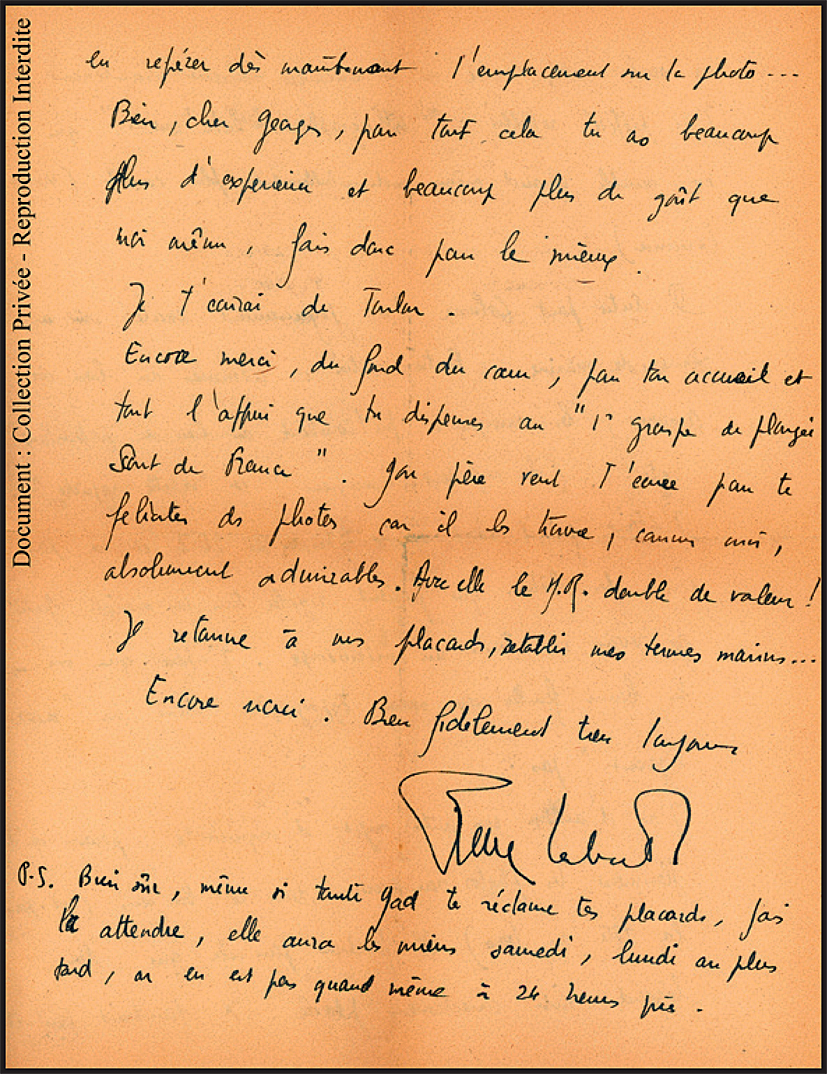 Document : Collection Privée - Reproduction Interdite
en repérer dès maintenant l'emplacement sur la photo...
Bien, cher Georges, pour tout cela tu as beaucoup
plus d'expérience et beaucoup plus de goût que
moi même, fais donc pour le mieux.
Je t'écrirai de Toulon.
Encore merci, du fond du cœur, pour ton accueil et
tout l'appui que tu dispenses au "1er groupe de plongée
Sont de France". Mon père veut t'écrire pour te
féliciter des photos car il les trouve, comme moi,
absolument admirables. Avec elle le double de valeur !
Je retourne à mes placards, rétablir mes termes marins...
Encore merci. Bien fidèlement tien toujours
P.S. Bien sûr, même si tante Gad te réclame tes placards, fais
la attendre, elle aura les miens samedi, lundi au plus
tard, on en est pas quand même à 24 heures près.